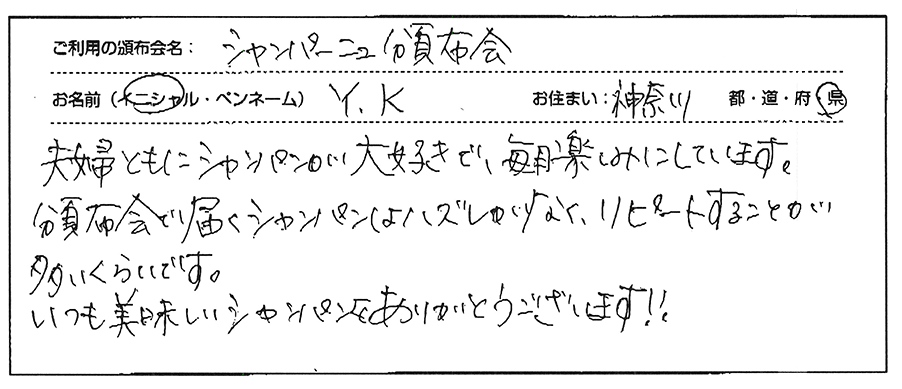 ご利用の頒布会名： シャンパーニュ頒布会
お名前（イニシャル・ペンネーム） Y.K お住まい： 神奈川 都・道・府・県
夫婦ともにシャンパンが大好きで、毎月楽しみにしています。
頒布会で届くシャンパンはハズレがなく、リピートすることが
多いくらいです。
いつも美味しいシャンパンをありがとうございます!!